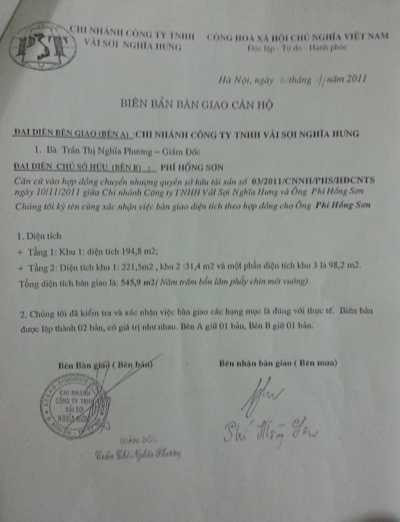 PST
CHI NHÁNH CÔNG TY TNHH
VẢI SỢI NGHĨA HƯNG
CỘNG HOÀ XÃ HỘI CHỦ NGHĨA VIỆT NAM
Độc lập - Tự do - Hạnh phúc
Hà Nội, ngày tháng 11 năm 2011
BIÊN BẢN BÀN GIAO CĂN HỘ
ĐẠI DIỆN BÊN GIAO (BÊN A) :CHI NHÁNH CÔNG TY TNHH VẢI SỢI NGHĨA HƯNG
1. Bà Trần Thị Nghĩa Phương – Giám Đốc
ĐẠI DIỆN CHỦ SỞ HỮU (BÊN B) : PHÍ HỒNG SƠN
Căn cứ vào hợp đồng chuyển nhượng quyền sở hữu tài sản số 03/2011/CNNH/PHS/HĐCNTS
ngày 10/11/2011 giữa Chi nhánh Công ty TNHH Vải Sợi Nghĩa Hưng và Ông Phí Hồng Sơn
Chúng tôi ký tên cùng xác nhận việc bàn giao diện tích theo hợp đồng cho Ông Phí Hồng Sơn
1. Diện tích
+ Tầng 1: Khu 1: diện tích 194,8 m2;
+ Tầng 2: Diện tích khu 1: 221,5m2 , khu 2 :31,4 m2 và một phần diện tích khu 3 là 98,2 m2.
Tổng diện tích bàn giao là: 545,9 m2/ Năm trăm bốn lăm phẩy chín mét vuông)
2. Chúng tôi đã kiểm tra và xác nhận việc bàn giao các hạng mục là đúng với thực tế. Biên bản
được lập thành 02 bản, có giá trị như nhau. Bên A giữ 01 bản, Bên B giữ 01 bản.
Bên Bàn giao ( Bên bán)
Bên nhận bàn giao ( Bên mua)
CHI NHÁNH
CÔNG TY TNHH
VẢI SỢI
NGHĨA HƯNG
Phí Hồng Sơn
GIÁM ĐỐC
Trần Thị Nghĩa Phương